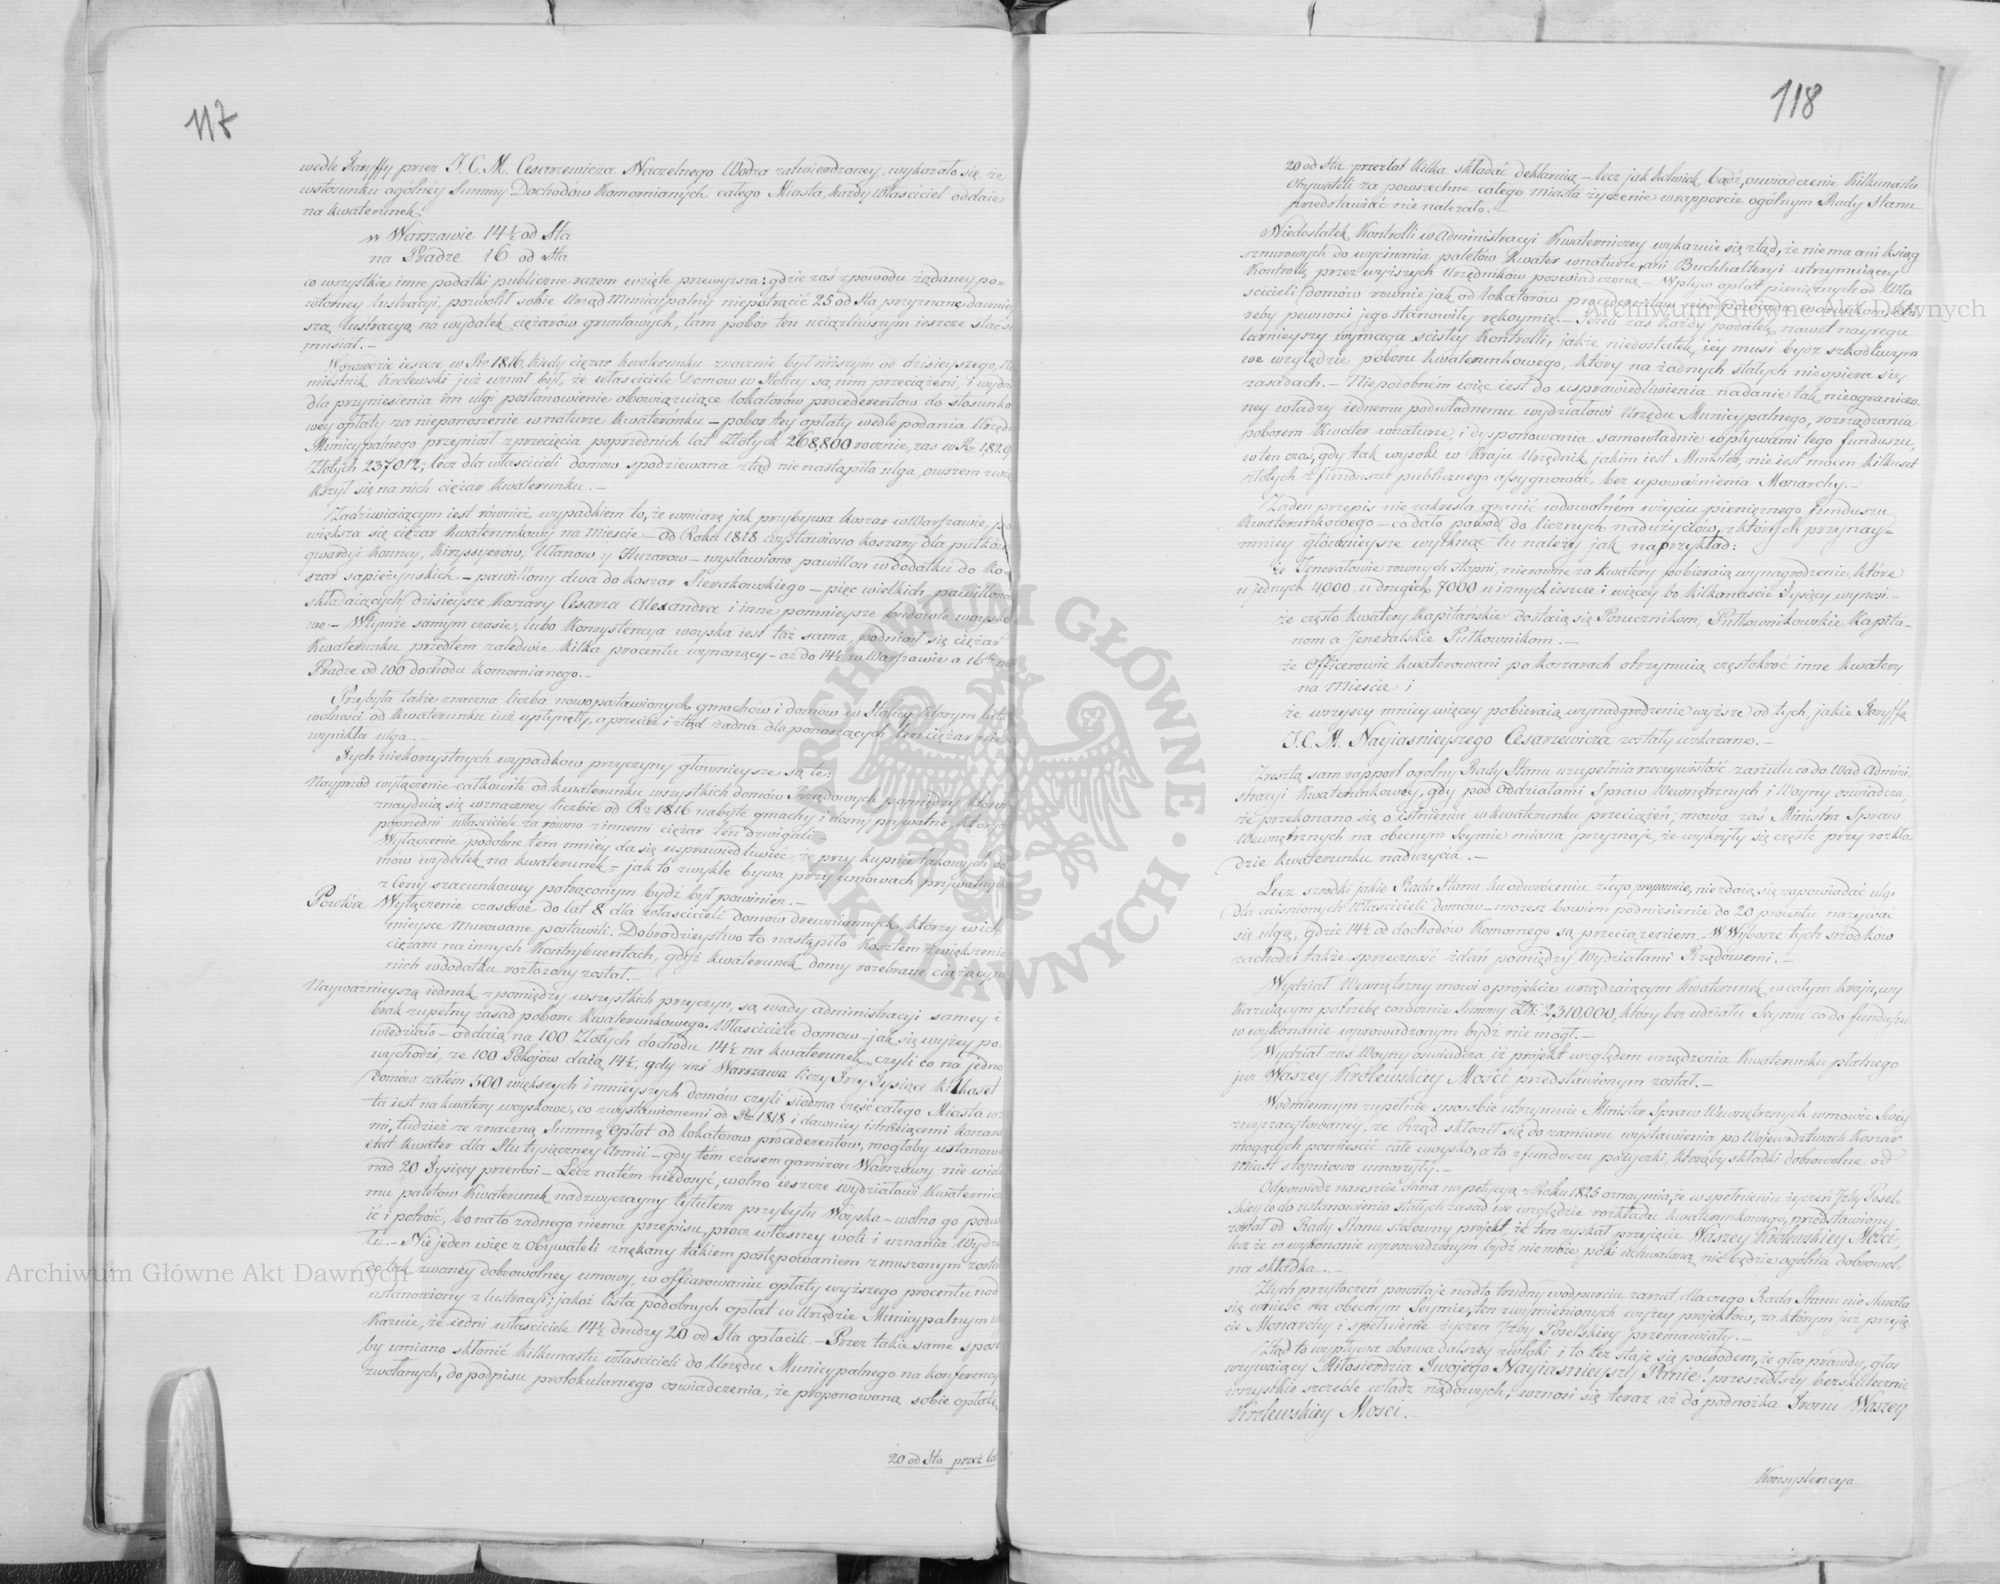 117
wedle Taryffy przez J. C. M. Cesarzewicza Naczelnego Wodza zatwierdzoney, wykazało się, że
wstosunku ogólnéy Summy Dochodów Komornianych całego Miasta, każdy Właściciel oddaie
na kwaterunek:
w Warszawie 14½ od Sta
na Pradze 16 od Sta
co wszystkie inne podatki publiczne razem wzięte przewyższa: gdzie zaś zpowodu żądaney po=
wtórney lustracyi, pozwolił sobie Urząd Municypalny niepotrącić 25 od Sta przyznane dawniey
szą lustracyą na wydatek ciężarów gruntowych, tam pobór ten uciążliwszym ieszcze stać się
musiał. —
Wprawdzie ieszcze w Ru 1816, kiedy ciężar kwaterunku znacznie był niższym od dzisieyszego, Na
miestnik Krolewski już uznał był, że właściciele Domow w Stolicy są nim przeciążeni, i wydał
dla przyniesienia im ulgi postanowienie obowiązuiące lokatorów procederentow do stosunko
wey opłaty za nieponoszenie w naturze kwaterónku — pobor tey opłaty wedle podania Urzędu
Municypalnego przyniosł zprzecięcia poprzednich lat Złotych 268,800 rocznie, zas w Ru 1829
Złotych 237012; lecz dla właścicieli domów spodziewana ztąd nie nastąpiła ulga, owszem zwię
kszył się na nich ciężar kwaterunku. —
Zadziwiaiącym iest również wypadkiem to, że wmiarę jak przybywa koszar w Warszawie, po
większa się ciężar kwaterunkowy na mieście — od Roku 1818 wystawiono koszary dla pułków
gwardyi konney, Kiryssyerow, Ułanow, y Huzarow — wystawiono pawillon w dodatku do ko=
szar sapieżynskich — pawillony dwa do koszar Sierakowskiego — pięc wielkich pawillonow
składaiących dzisieysze Koszary Cesarza Alexandra i inne pomnieysze budowle woysko
we — W tymże samym czasie, lubo Konsystencya woyska iest taż sama, podniosł się ciężar
Kwaterunku przedtém zaledwie kilka procentu wynoszący — aż do 14½ w Warszawie a 16te na
Pradze od 100 dochodu komornianego. —
Przybyła także znaczna liczba nowopostawionych gmachów i domow w Stolicy ktorym lata
wolności od kwaterunku iuż upłynęły, a przecież i ztąd żadna dla ponoszących ten ciężar nie
wynikła ulga. —
Tych niekorzystnych wypadkow przyczyny głownieysze są te:
Nayprzod wyłączenie całkowite od kwaterunku wszystkich domów Rządowych pomiędzy ktore
znayduią się wznaczney liczbie od Ru 1816 nabyte gmachy i domy prywatne, ktorych
poprzedni właściciele zarówno zinnemi ciężar ten dzwigali
Wyłączenie podobne tém mniey da się usprawiedliwieć, że przy kupnie takowych do
mów wydatek na kwaterunek — jak to zwykle bywa przy umowach prywatnych
z Ceny szacunkowey potrąconym bydź był powinien. —
Powtóre Wyłączenie czasowe do lat 8 dla właścicieli domów drewnianych, którzy w ich
mieysce murowane postawili. Dobrodzieystwo to nastąpiło kosztem zwiększenia
ciężaru na innych Kontrybuentach, gdyż kwaterunek domy rozebrane ciążący na
nich w dodatku rozłożony został. —
Nayważnieyszą iednak zpomiędzy wszystkich przyczyn, są wady administracyi samey i
brak zupełny zasad poboru kwaterunkowego. Właściciele domow — jak się wyżey po
wiedziało — oddaią na 100 Złotych dochodu 14½ na kwaterunek, czyli co na jedno
wychodzi, ze 100 Pokojów daią 14½, gdy zaś Warszawa liczy Trzy Tysiące kilkaset
Domów zatém 500 większych i mnieyszych domów czyli siódma część całego Miasta wzię
ta iest na kwatery woyskowe, co zwystawionemi od Ru 1818 i dawniey istniejącemi koszara
mi, tudzież ze znaczną Summą opłat od lokatorow procederentów, mogłoby ustanowić
etat kwater dla Stu tysięczney Armii — gdy tém czasem garnizon Warszawy nie wiele
nad 20 Tysięcy przenosi — Lecz natém niedosyć, wolno ieszcze wydziałowi kwaternicze
mu paletow Kwaterunk nadzwyczayny tytułem przybytu Woyska — wolno go podwo
ić i potroić, bo nato żadnego niema przepisu, procz własney woli i uznania Wydzia
łu. — Nie jeden więc z Obywateli znękany takiem postępowaniem zmuszonym został
do tak zwaney dobrowolney umowy, w offiarowaniu opłaty wyższego procentu nad
ustanowiony z lustracyi; jakoż lista podobnych opłat w Urzędzie Municypalnym wy
kazuie, że iedni właściciele 14½ drudzy 20 od Sta opłacili. — Przez takie same sposo
by umiano skłonić kilkunastu właścicieli do Urzędu Municypalnego na konferencyą
zwołanych, do podpisu protokularnego oswiadczenia, że proponowaną sobie opłatę
20 od Sta przez la
118
20 od Sta przez lat kilka składać deklaruią — lecz jak kolwiek bądź, oswiadczenie kilkunastu
Obywateli za powszechne całego miasta życzenie w rapporcie ogólnym Rady Stanu
przedstawiać nie należało. —
Niedostatek Kontrolli w Administracyi Kwaterniczey wykazuie się ztąd, że nie ma ani ksiąg
sznurowych do wycinania paletów kwater wnaturze, ani Buchhalteryi utrzymuiącey
Kontrollę przez wyższych Urzędników poswiadczoną — Wpływ opłat pieniężnych od Wła
scicieli domów rownie jak od lokatorów procederentów nieodpowiada warunkom, któ
reby pewnosci jego stanowiły rękoymię. — Jeżeli zas każdy podatek nawet nayregu
larnieyszy wymaga scisłey Kontrolli, jakże niedostatek iey musi bydź szkodliwym
we względzie poboru kwaterunkowego, który na żadnych stałych nieopiera się
zasadach. — Niepodobném więc iest do usprawiedliwienia nadanie tak nieograniczo=
ney władzy iednemu podwładnemu wydziałowi Urzędu Municypalnego, rozrządzania
poborem Kwater wnaturze, i dysponowania samowładnie wpływami tego funduszu,
w ten czas, gdy tak wysoki w Kraju Urzędnik jakim iest Minister, nie iest mocen kilkuset
złotych z funduszu publicznego assygnować, bez upoważnienia Monarchy. —
Żaden przepis nie zakresla granic wdowolném użyciu pieniężnego funduszu
Kwaterunkowego — co dało powod do licznych nadużyciów, z których przynay=
mniey głownieysze wytknąć tu należy jak naprzykład:
że Jenerałowie rownych stopni, nierowne za kwatery pobieraią wynagrodzenie, które
u jednych 4000 u drugich 7000 u innych ieszcze i więcey bo kilkanaście Tysięcy wynosi. —
że często kwatery Kapitańskie dostaią się Porucznikom, Pułkownikowskie Kapita=
nom a Jeneralskie Pułkownikom. —
że Officerowie kwaterowani po koszarach otrzymuią częstokroć inne kwatery
na Miescie i
że wszyscy mniey więcey pobieraią wynadgrodzenie wyższe od tych, jakie Taryffą
J. C. M. Nayiasnieyszego Cesarzewicza zostały wskazane. —
Zresztą sam rapport ogolny Rady Stanu uzupełnia rzeczywistość zarzutu co do Wad Admini
stracyi Kwaterunkowey, gdy pod Oddziałami Spraw Wewnętrznych i Woyny oswiadcza,
że przekonano się o istnieniu w kwaterunku przeciążeń; mowa zaś Ministra Spraw
Wewnętrznych na obecnym Seymie miana przyznaje, że wykryły się częste przy rozkła
dzie kwaterunku nadużycia. —
Lecz srzodki jakie Rada Stanu ku odwróceniu złego proponuie, nie zdaią się zapowiadać ulgi
dla ucisnionych Właścicieli domów — możesz bowiem podniesienie do 20 procentu nazywać
się ulgą, gdzie 14½ od dochodów Komornego są przeciążeniem — W Wyborze tych srzodków
zachodzi także sprzeczność zdań pomiędzy Wydziałami Rządowemi. —
Wydział Wewnętrzny mowi o projekcie urządzaiącym Kwaterunek w całym kraju, wy
kazuiącym potrzebę corocznie Summy Złt: 2,310,000, który bez udziału Seymu co do funduszu
w wykonanie wprowadzonym bydź nie mogł. —
Wydział zas Woyny oswiadcza iż projekt względem urządzenia Kwaterunku płatnego
już Waszey Królewskiey Mości przedstawionym został. —
Wodmiennym zupełnie sposobie utrzymuie Minister Spraw Wewnętrznych wmowie Swéy
zwyszacytowaney, że Rząd skłonił się do zamiaru wystawienia po Województwach Koszar
mogących pomieścić całe woysko, a to z funduszu pożyczki, którąby składki dobrowolne od
Miast stopniowo umorzyły. —
Odpowiedz nareszcie dana na petycyą z Roku 1825 oznaymia, że w spełnieniu życzeń Izby Posel=
skiey co do ustanowienia stałych zasad we względzie rozkładu kwaterunkowego, przedstawiony
został od Rady Stanu stosowny projekt, że ten zyskał przyięcie Waszey Królewskiey Mości,
lecz że w wykonanie wprowadzonym bydź niemoże, póki uchwaloną nie będzie ogólna dobrowol=
na składka. —
Ztych przytoczeń powstaje nadto trudny wodparciu zarzut, dla czego Rada Stanu nie chciała
się wnieść na obecnym Seymie, ten zwymienionych wyżey projektów, za którym już przyię
cie Monarchy i spełnienie życzeń Izby Poselskiey przemawiały. —
Ztąd to wypływa obawa dalszey zwłoki i to też staje się powodem, że głos prawdy, głos
wzywaiący Miłosierdzia Twojego Nayiasnieyszy Panie! przeszedłszy bezskutecznie
wszystkie szczeble władz rządowych, wznosi się teraz aż do podnóżka Tronu Waszey
Królewskiey Mości. —
Konsystencya
Archiwum Główne Akt Dawnych
Archiwum Główne Akt Dawnych
ARCHIWUM GŁÓWNE
AKT DAWNYCH